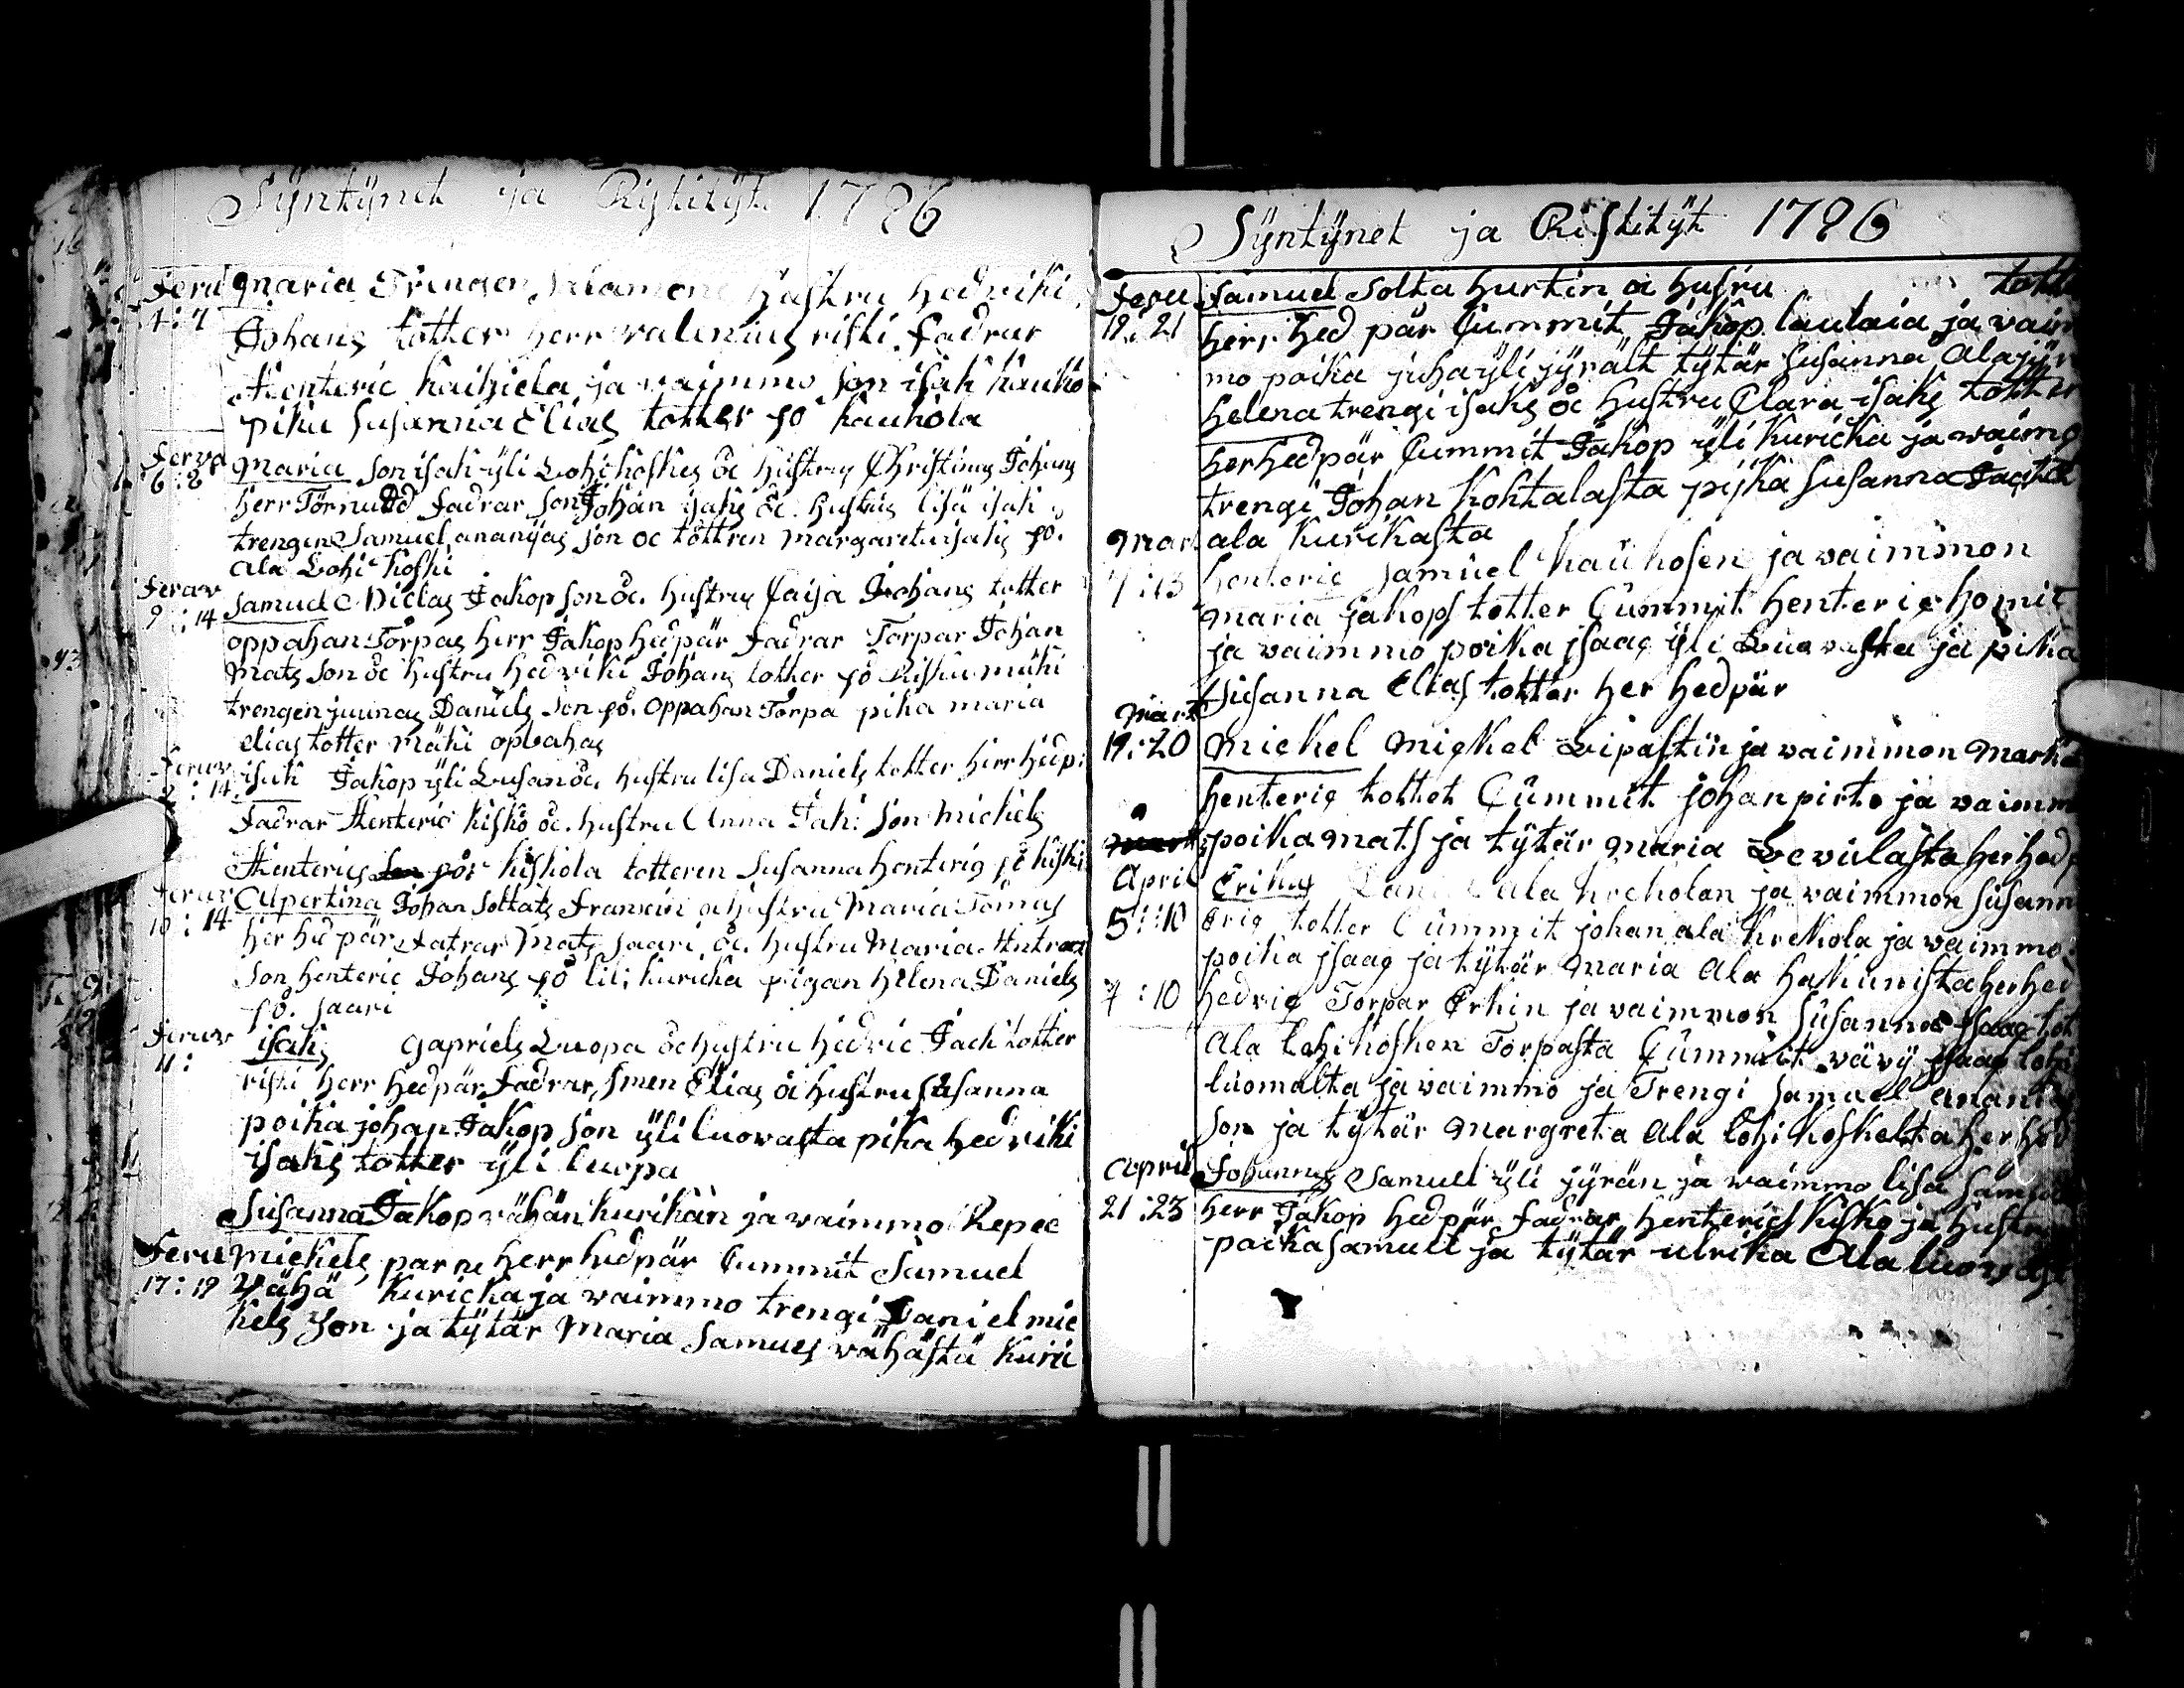 Syntynet ja Ristityt 1786
Feru Maria Trengen Salamons hustru hedviki
4:7 Johans totter herr valenius risti fadrar
Henteric kaihiela ja vaimmo son isak kauko
pika Susanna Elias totter på kauhola
Feruv Maria son isak yli Lohikoskes åc hustrus Christinas Johans
6:8 herr Törnudd fadrar son Johan isaks åc hustrus lisa isak
trengen Samuel ananyas son oc tottren margareta isaks på
ala Lohikoski
Feruv Samuel Niclas Jakop son åc. hustrus Caisa Johans totter
9:14 oppahan Torpas herr Jakop hedpär fadrar Torpar Johan
Mats son åc hustru hedviki Johans totter på Mäki
trengen juunas Daniels son på. oppahan Torpa pika maria
elias totter mäki opbahas
Feruv isak Jakop yli Lusan åc. hustru lisa Daniels totter herr hedp:
:14 Fadrar Henteric kisko åc. hustru Anna Jak: son michels
Henterics på: kiskola totteren Susanna henterig på kiski
Feruv Alpertina Johan soltats franscin hustru Maria Tomas
10:14 her hedpär fatrar Mats saari åc. hustru Maria Antreas
son henteric Johans på lil: kuricka pigan helena Daniels
på. saari
Feruv isak Gapriels Luopa åc hustru hedvic Jack totter
11: risti herr hedpär fadrar, smen Elias åc hustru susanna
poika johan Jakop son yli luovasta pika hedviki
isaks totter yli luopa
Susanna Jakop vähän kurikan ja vaimmo Repec
Feru michels parn herr hedpär Cummit Samuel
17:19 Vähä kuricka ja vaimmo trengi Daniel mic
hels son ja tytär Maria Samues vähästä kuri
Syntynet ja Ristityt 1786
Feru Samuel Solta hurtin åc husru totte
19:21 herr hed pär Cummit Jakop lautaia ja vaim
mo poika juha yli jyrält tytär Susanna Alajyr
helena trengi isaks åc hustru Clara isaks totter
her hedpär Cummit Jakop yli kuricka ja vaimo
trengi Johan kohtalasta pijka Susanna
Mar ala kurikasta
7:13 henteric Samuel kauhosen ja vaimmon
Maria jakops totter Cummit henteric homit
ja vaimmo poika jsaac yli Luovasta ja pika
Susanna Elias totter her hedpär
Mart
19:20 Mickel Mickel Lipastin ja vaimmon Marka
henteric tottet Cummit johan pirto ja vaimm
poika mats ja tytär Maria Levulasta her hedp
April Erikus ala krekolan ja vaimmon susann
5:10 Eric totter Cummit johan ala krekola ja vaimmo
poika jsaac ja tytär Maria Ala haskunista her hed
7:10 hedvig Torpar Erkin ja vaimmon Susannas Jsaac tot
Ala Lohikosken Torpasta Cummit vävy jsaac lohi
luomalta ja vaimmo ja Trengi Samuel anania
son ja tytär Margreta Ala lohikoskelta her hed
April Johannes Samuel yli jyrän ja vaimmo lisa Samu
21:23 herr Jakop hedpär fadrar henterics kisko ja hustr
poika Samuel ja tytär ulrika Ala luovast